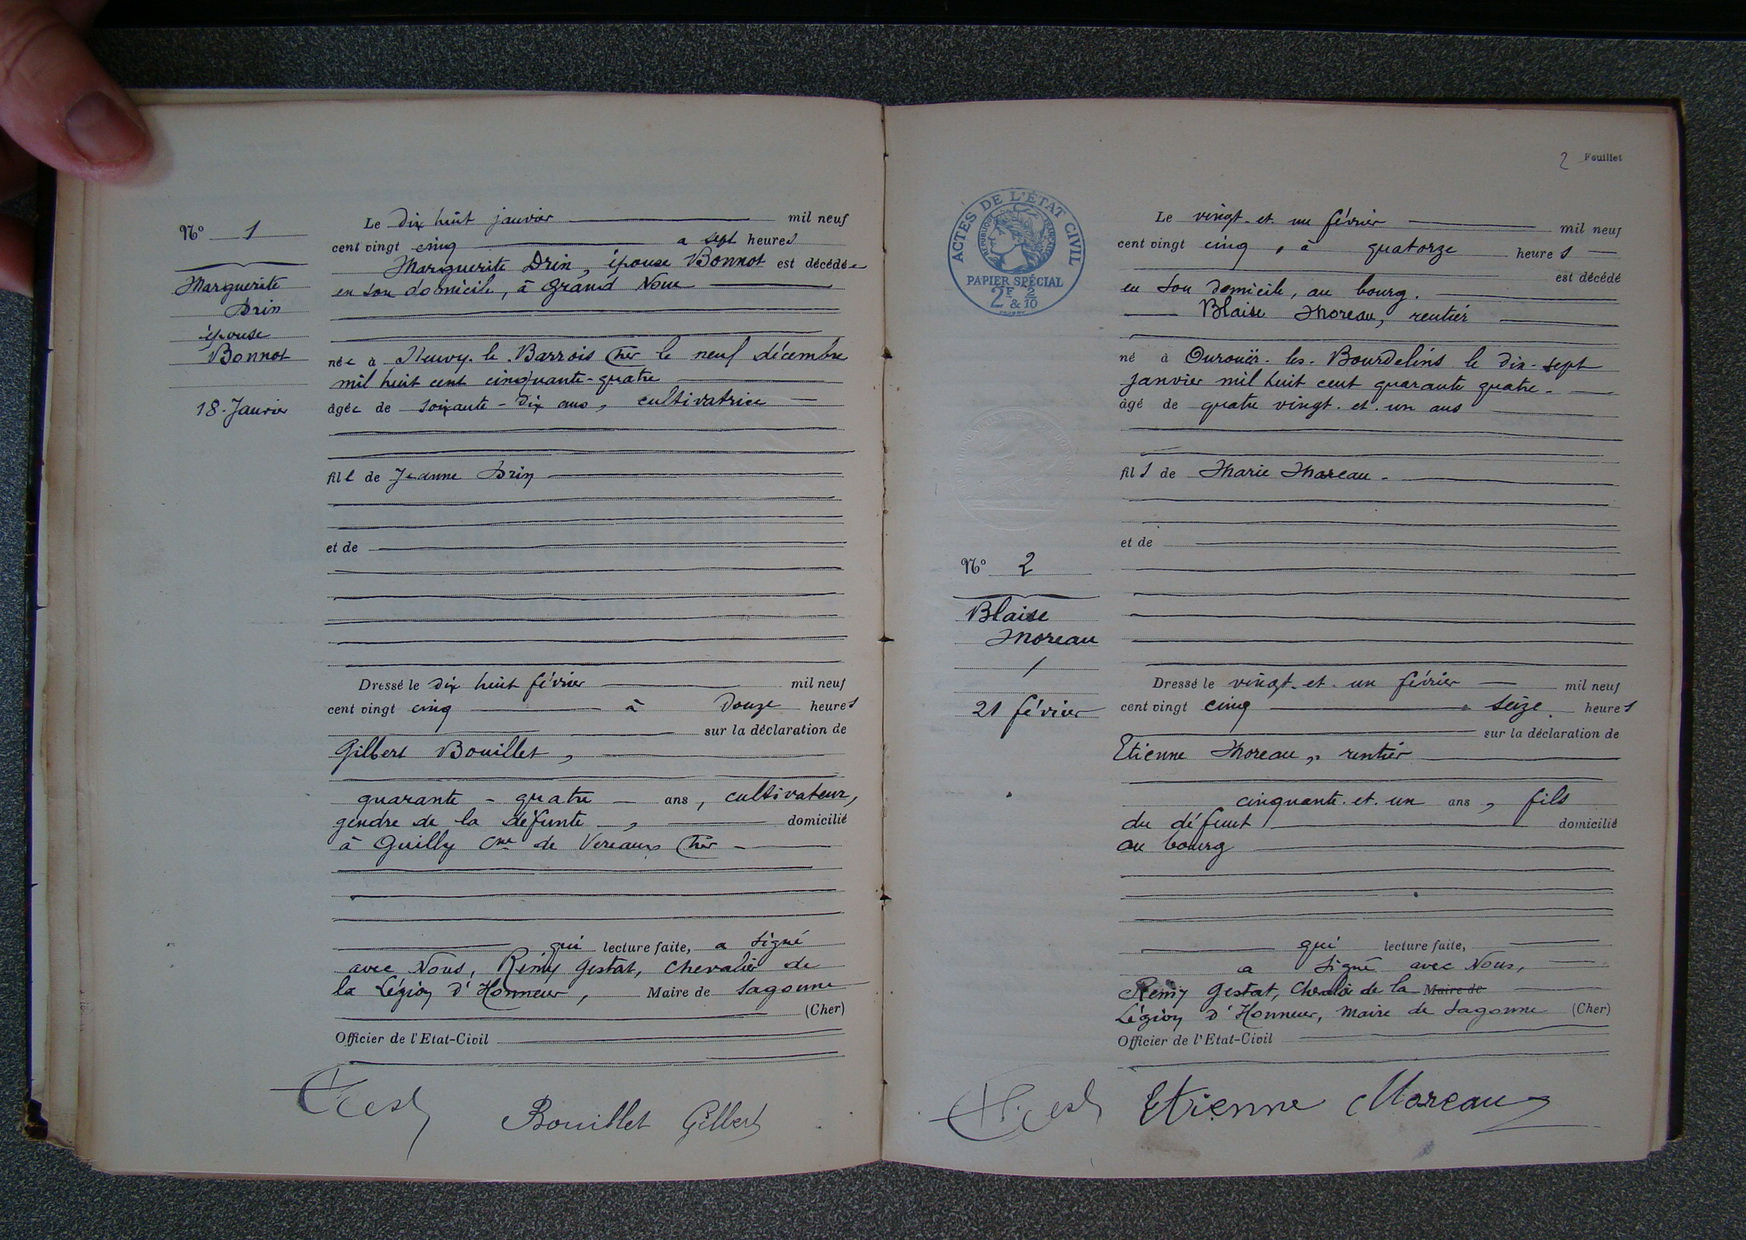 Nº 1
Marguerite
Drin
épouse
Bonnot
18 Janvier
Le dix huit janvier mil neuf
cent vingt cinq a sept heures
Marguerite Drin, épouse Bonnot est décédée
en son domicile, à Grand Nom
née à Neuvy-le-Barrois Cher le neuf décembre
mil huit cent cinquante-quatre
âgée de soixante-dix ans, cultivatrice
fille de Jeanne Drin
et de
Dressé le dix huit février mil neuf
cent vingt cinq à douze heures
sur la déclaration de
Gilbert Bouillet,
quarante-quatre ans, cultivateur,
gendre de la défunte, domicilié
à Guilly Cne de Vereaux Cher
qui lecture faite, a signé
avec Nous, Rémy Gestat, Chevalier de
la Légion d'Honneur, Maire de Sagonne
(Cher)
Officier de l'Etat-Civil
Bouillet Gilbert
2 Feuillet
ACTES DE L'ÉTAT CIVIL
RÉPUBLIQUE FRANÇAISE
PAPIER SPÉCIAL
2F & 2/10
Nº 2
Blaise
Moreau
21 février
Le vingt-et-un février mil neuf
cent vingt cinq, à quatorze heures
est décédé
en son domicile, au bourg.
Blaise Moreau, rentier
né à Ourouër-les-Bourdelins le dix-sept
janvier mil huit cent quarante quatre.
âgé de quatre vingt-et-un ans
fils de Marie Moreau.
et de
Dressé le vingt-et-un février mil neuf
cent vingt cinq seize heures
sur la déclaration de
Etienne Moreau, rentier
cinquante-et-un ans, fils
du défunt domicilié
au bourg
qui lecture faite,
a signé avec Nous,
Rémy Gestat, Chevalier de la Maire de
Légion d'Honneur, Maire de Sagonne (Cher)
Officier de l'Etat-Civil
Etienne Moreau